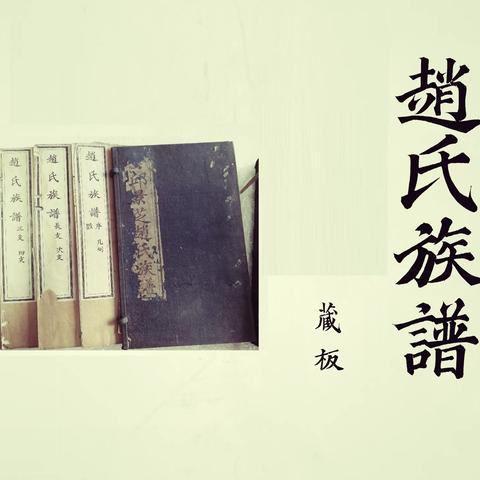 趙氏族譜
藏板
邱景芝趙氏族譜
趙氏族譜 序 凡例
趙氏族譜 長支 次支
趙氏族譜 三支 四支